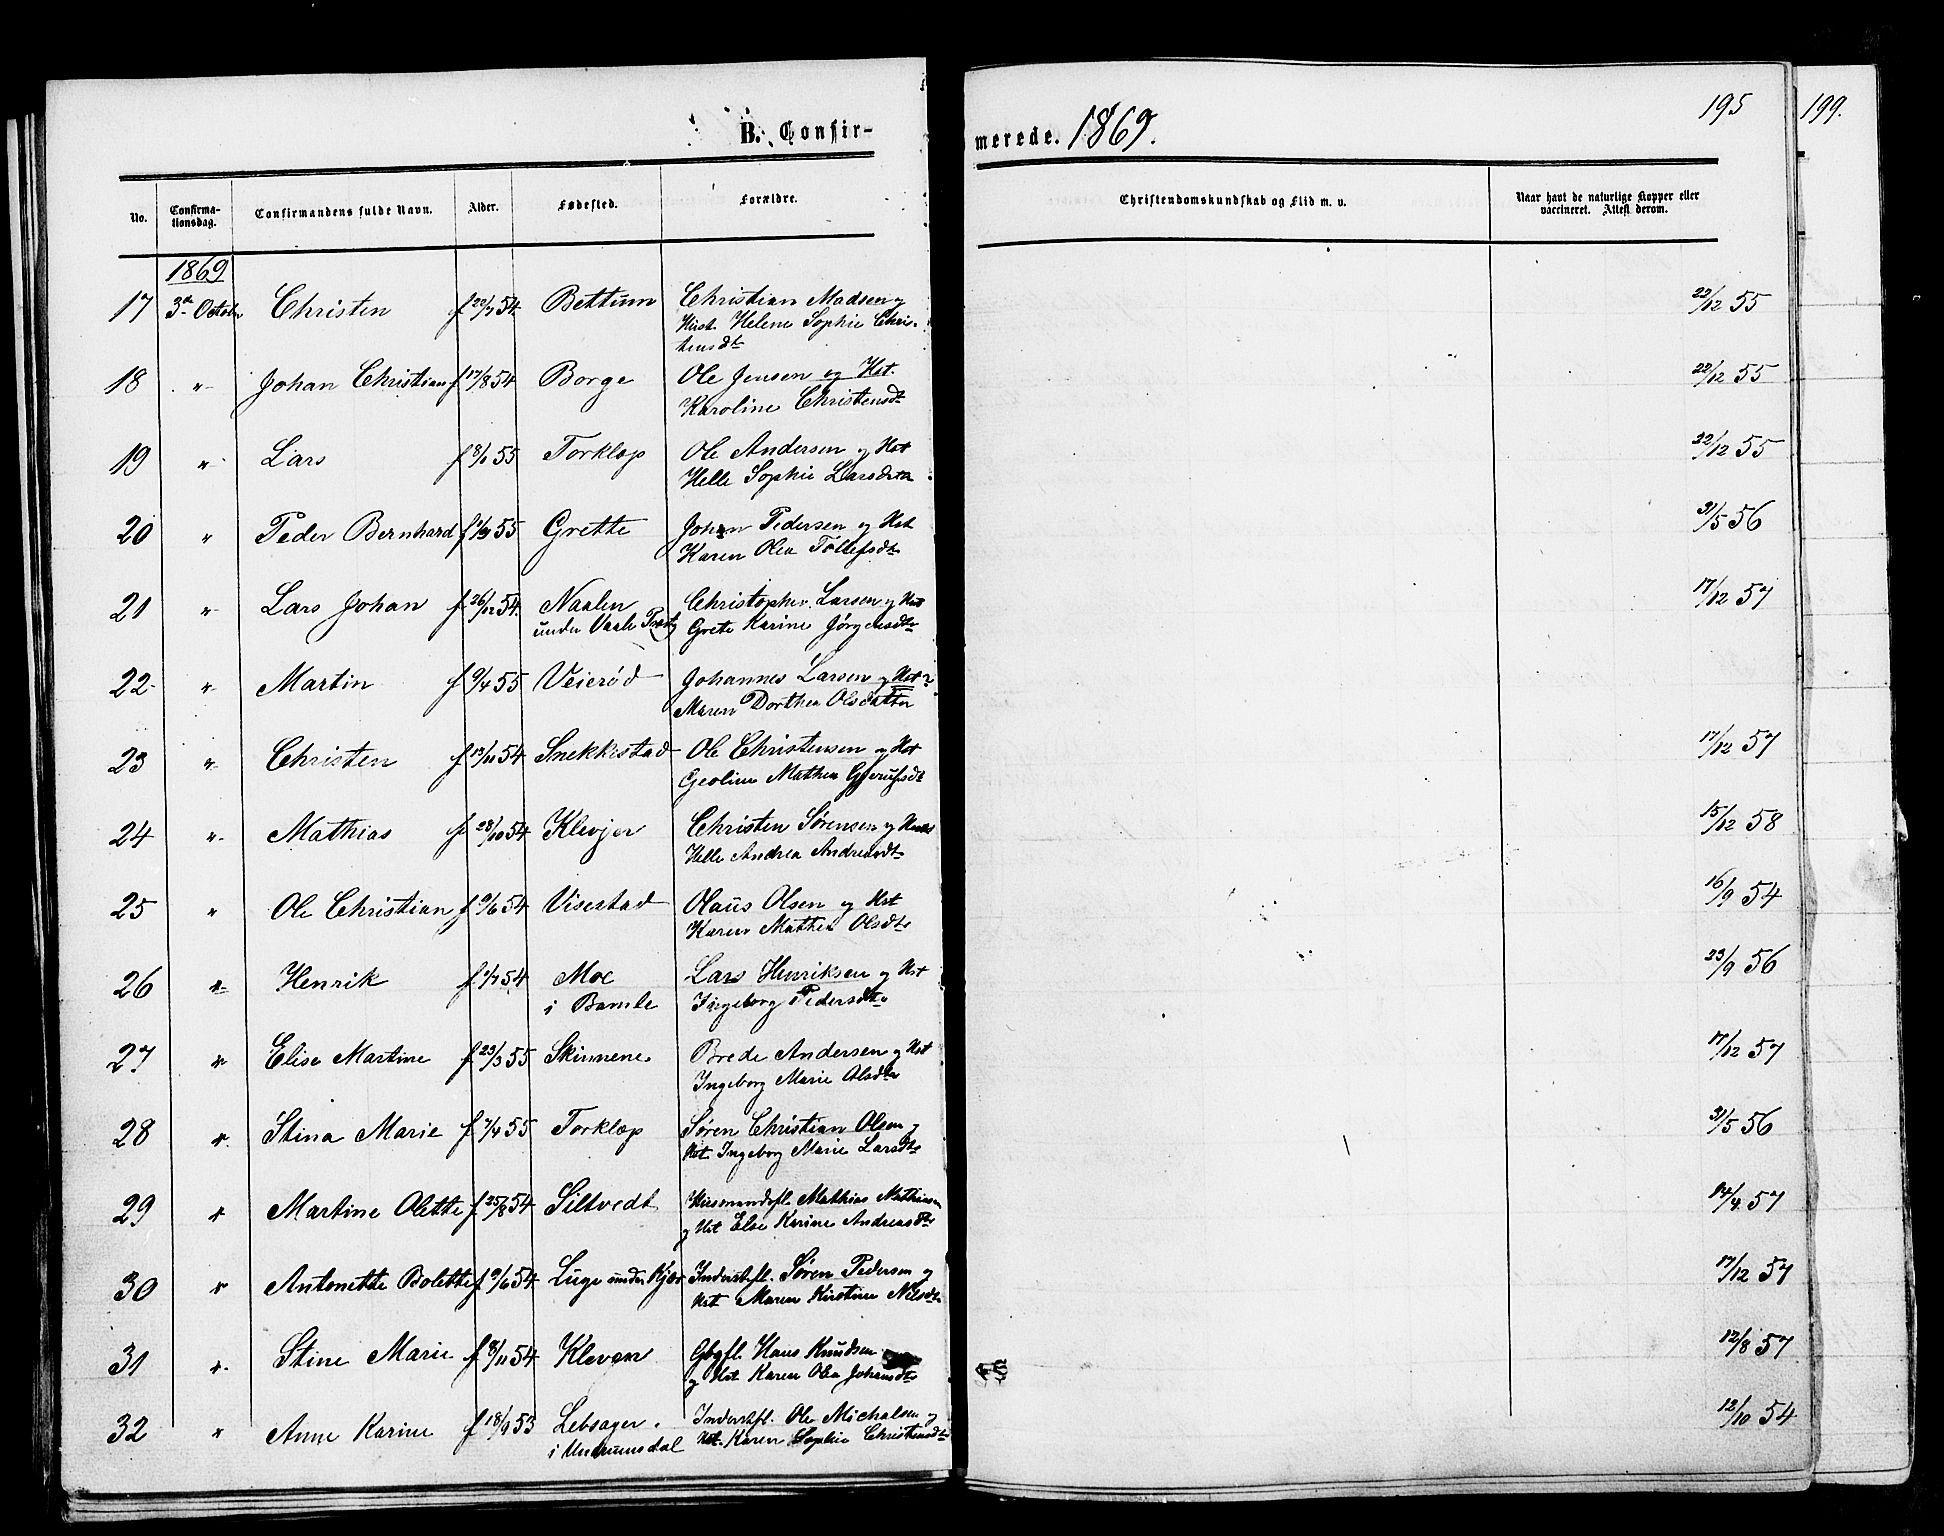 B. Confir-
merede. 1869.
195
199.
No.
Confirma-
tionsdag.
Confirmandens fulde Navn.
Alder.
Fødested.
Forældre.
Christendomskundskab og Flid m. v.
Naar havt de naturlige Kopper eller
vaccineret. Attest derom.
1869
17 3die Octob Christen f 22/7 54. Bettum Christian Madsen og
Hust. Helene Sophie Chri-
tensdt
22/12 55
18 " Johan Christian f 17/8 54 Borge Ole Jensen og Hst.
Karoline Christensdt
22/12 55
19 " Lars f 8/1 55 Torklep Ole Andersen og Hst
Helle Sophie Larsdttr
22/12 55
20 " Peder Bernhard f 55 Grette Johan Pedersen og Hst
Karen Olea Tollefsdt
31/5 56
21 " Lars Johan f 26/12 54. Naalen Christopher Larsen og Hst
under Vaale Præstg Grete Karine Jørgensdt
17/12 57
22 " Martin f 9/4 55 Veierød Johannes Larsen og Hst
Maren Dorthea Olsdatter
23 " Christen f 13/11 54 Snekkestad Ole Christensen og Hst
Geoline Mathea
17/12 57
24 " Mathias f 28/10 54 Klevjer Christen Sørensen og
Helle Andrea Andreasdt
15/12 58
25 " Ole Christian f 9/6 54 Viserstad Olaus Olsen og Hst
Karen Mathea Olsdt
16/9 54
26 " Henrik f 54 Moe Lars Henriksen og Hst
i Bamle Ingeborg Pedersdt
23/9 56
27 " Elise Martine f 23/3 55 Skinnene Brede Andersen og Hst
Ingeborg Marie Olsdtr
17/12 57
28 " Stina Marie f 7/4 55 Torklep Søren Christian Olsen og
Hst. Ingeborg Marie Larsdt
31/5 56
29 " Martine Olette f 25/8 54 Siltvedt Huusmandsfl. Mathias Mathiasen
og Hst Else Karine Andreasdtr
14/4 57
30 " Antonette Bolette f 9/6 54 Luge under Kjær Inderstfl. Søren Pedersen og
Hst Maren Kirstine Nilsdt
17/12 57
31 " Stine Marie f 8/11 54 Kleven Gbgfl. Hans Knudsen
og Hst Karen Olea Johansdt
12/8 57
32 " Anne Karine f 18/9 53 Lebsager Inderstfl. Ole Michalsen og
i Undrumsdal Hst. Karen Sophie Christensdt
12/10 54